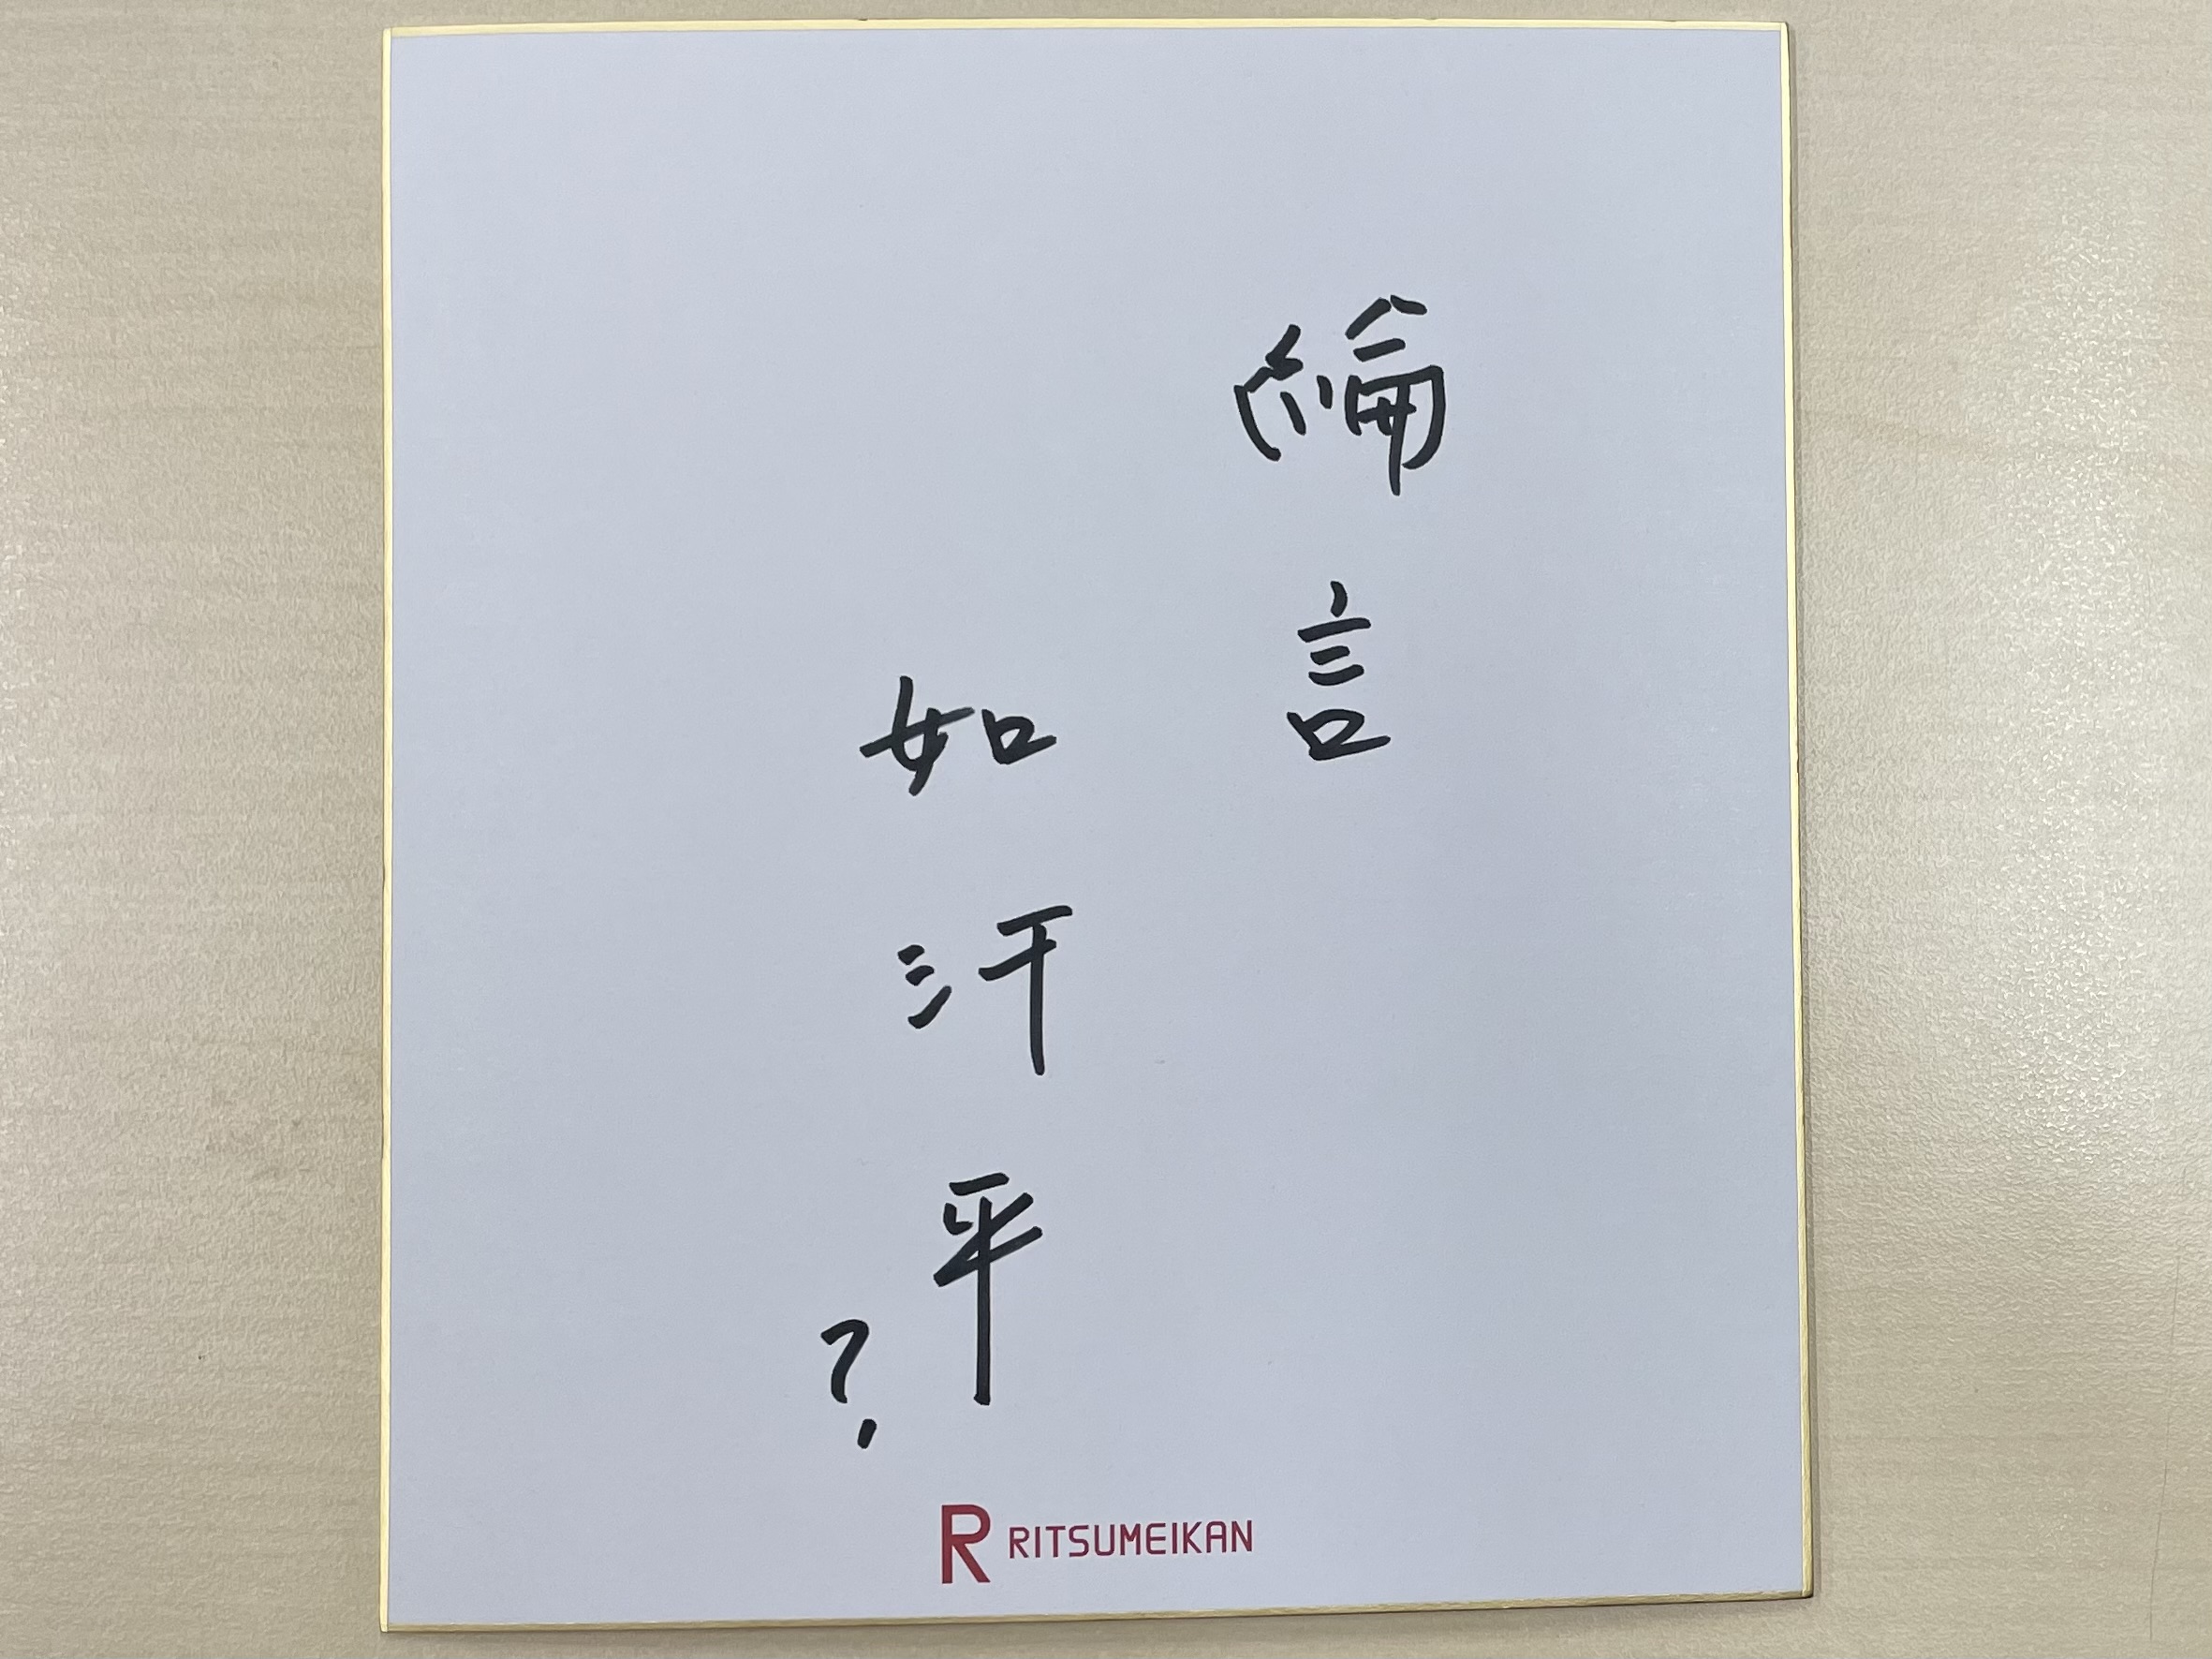 綸言
如汗乎
?
R RITSUMEIKAN